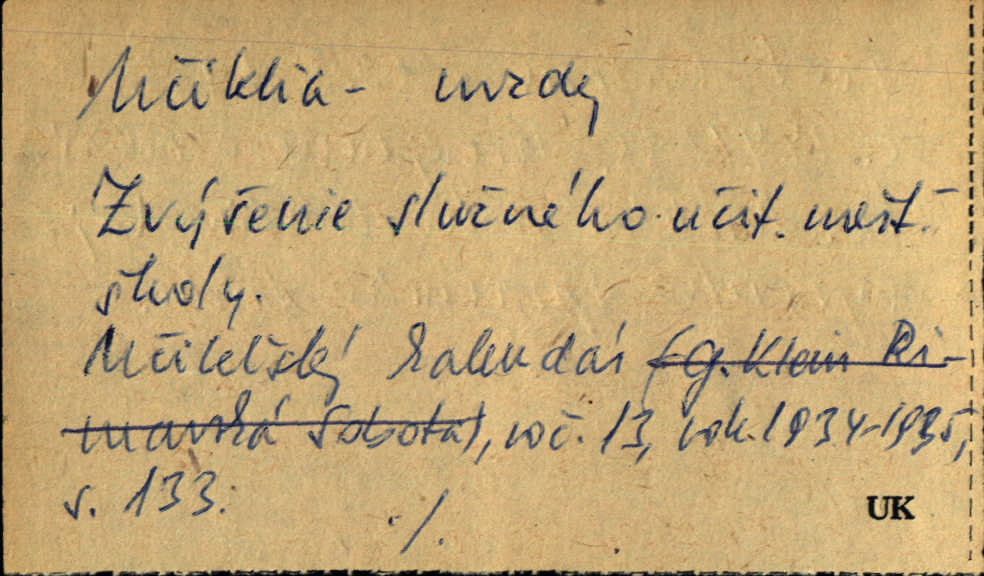 Učitelia - mzdy
Zvýšenie služného učit. mešt.
školy.
Učiteľský kalendár (G. Klein Ri-
mavská Sobota), roč. 13, rok. 1934-1935,
s. 133.
./.
UK